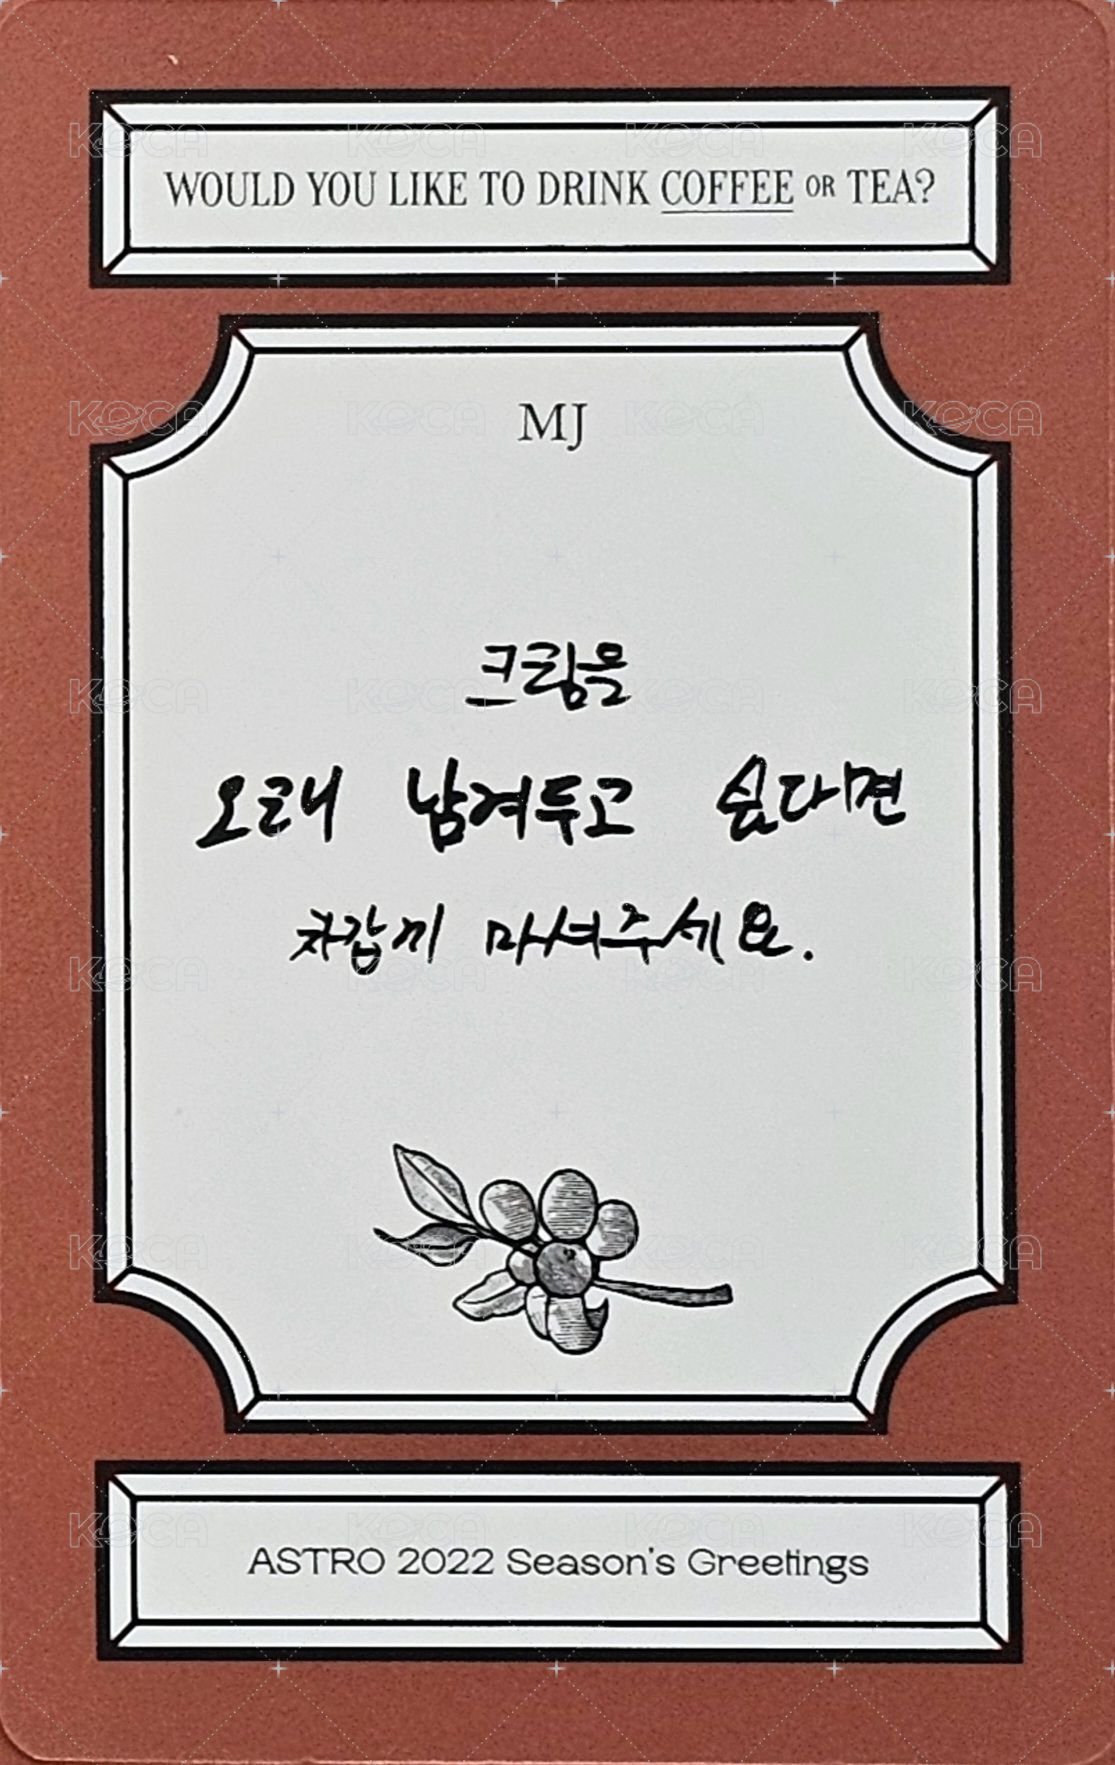 WOULD YOU LIKE TO DRINK COFFEE OR TEA?
MJ
크림을
오래 남겨두고 싶다면
차갑게 마셔주세요.
ASTRO 2022 Season's Greetings
KOCA